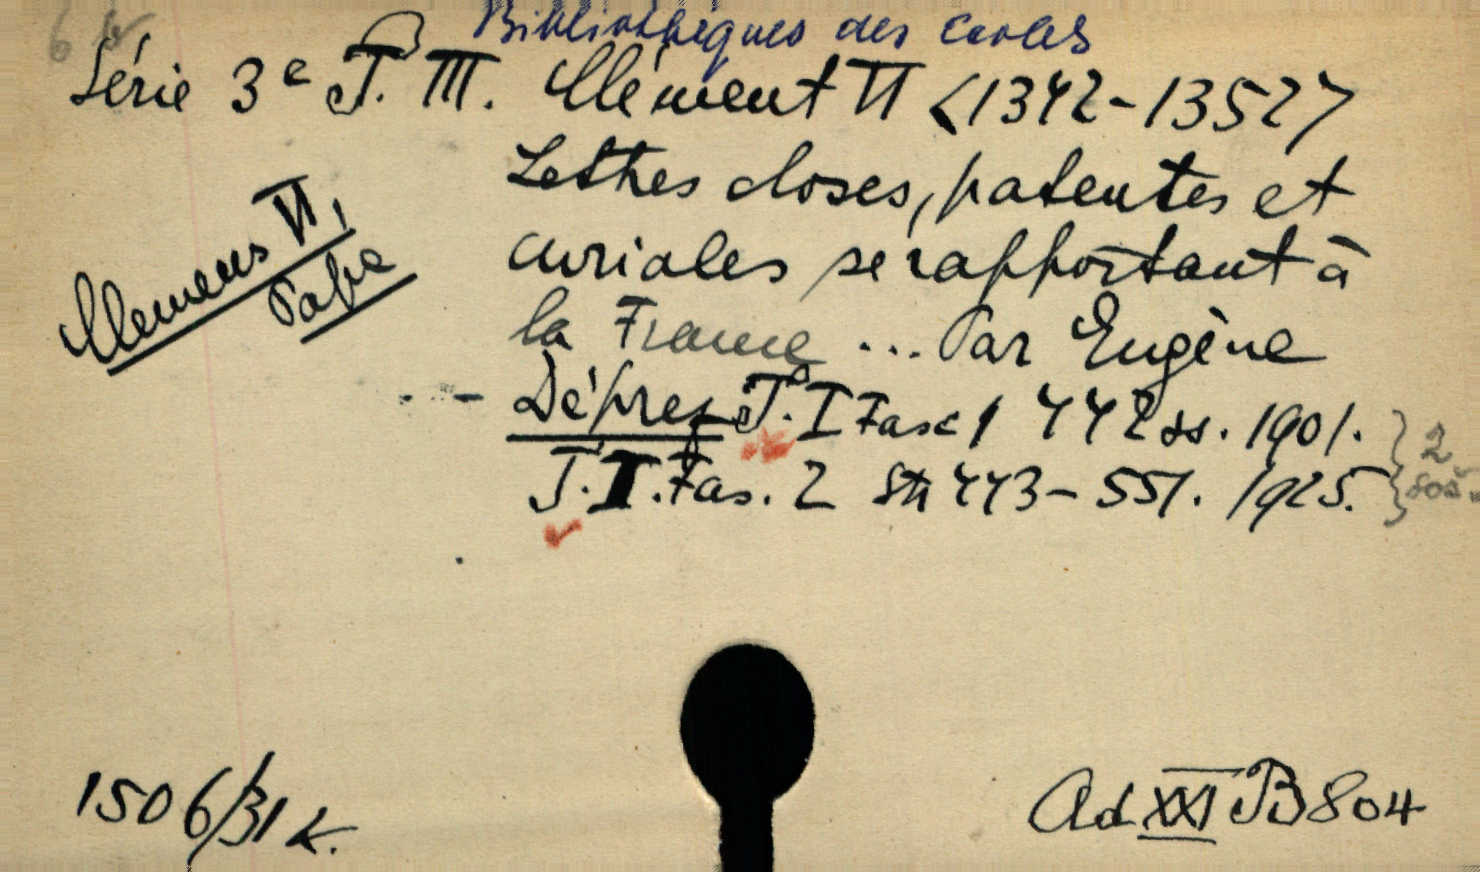 Bibliothèques des écoles
Série 3e T. III. Clément VI <1342-1352>
Lettres closes, patentes et
curiales se rapportant à
la France ... Par Eugène
Déprez T. I Fasc 1 442 ss. 1901.
T. I. Fas. 2 Str 443-551. 1925. } 2
Clemens VI,
Papa
1506/31 K.
Ad XXI B 804